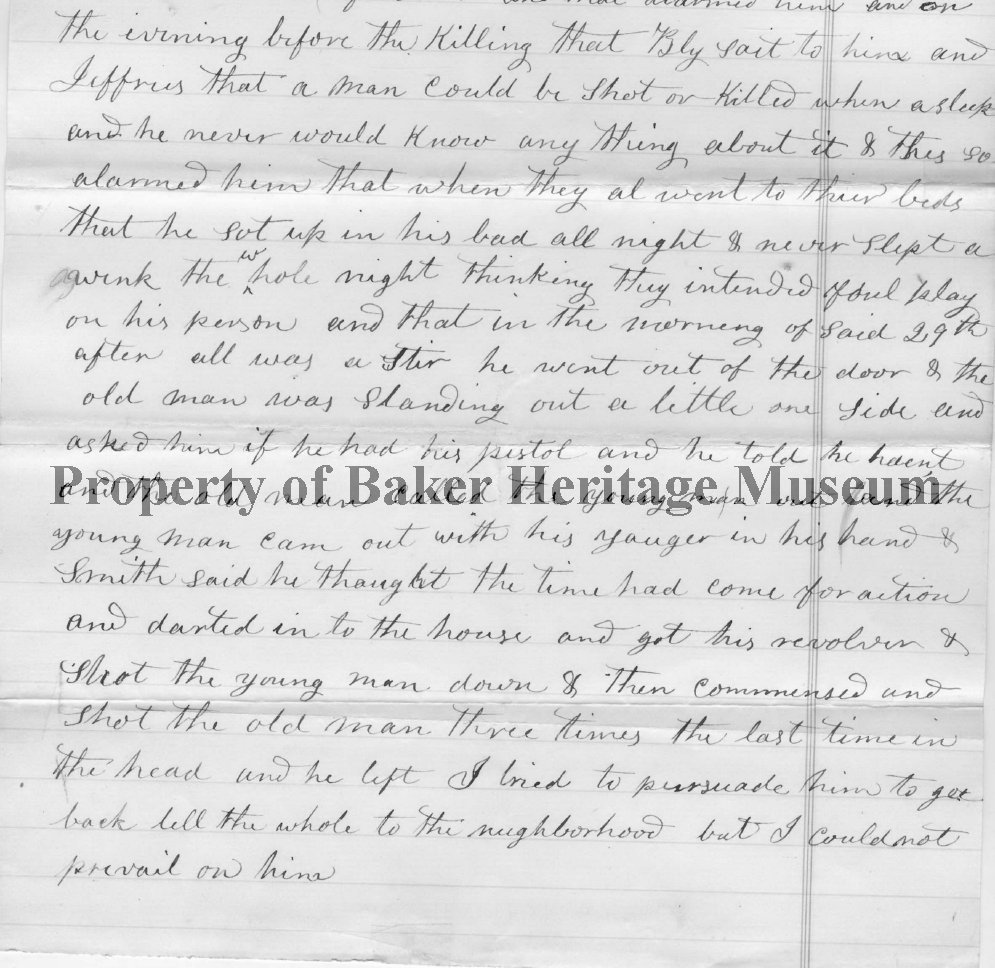 alarmed him and on
the evening before the Killing that Bly sait to him and
Jeffries that a man could be shot or Killed when asleep
and he never would Know any thing about it & this so
alarmed him that when they al went to thier beds
that he sot up in his bad all night & never slept a
wink the whole night thinking they intended foul play
on his person and that in the morneng of said 29th
after all was a stir he went out of the door & the
old man was standing out a little one side and
asked him if he had his pistol and he told he haent
Property of Baker Heritage Museum
and the old man called the young man out and the
young man cam out with his yauger in his hand &
Smith said he thought the time had come for action
and darted in to the house and got his revolver &
Shot the young man down & then commensed and
shot the old man three times the last time in
the head and he left I tried to pursuade him to go
back tell the whole to the neughborhood but I could not
prevail on him